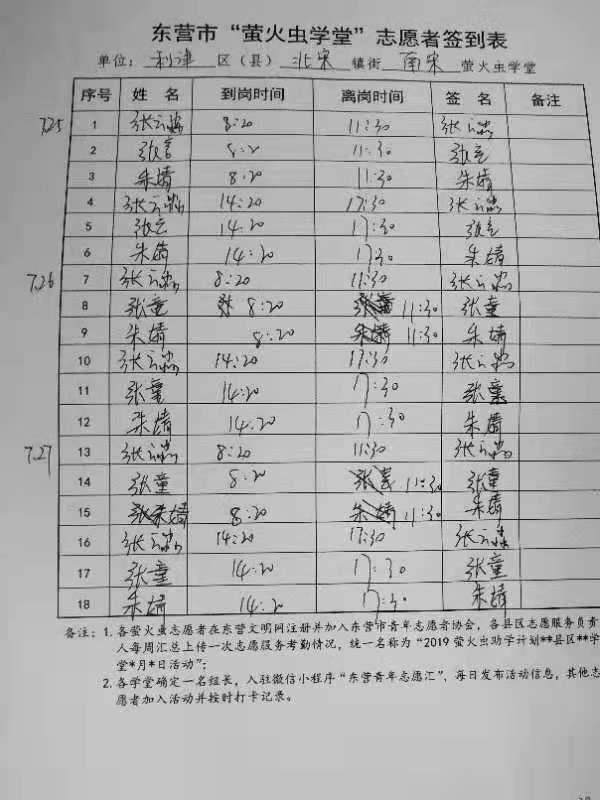 东营市“萤火虫学堂”志愿者签到表
单位：利津区（县）北宋镇街南宋萤火虫学堂
序号 姓 名 到岗时间 离岗时间 签 名 备注
7.25 1 张云 8:20 11:30 张云
2 张 8:2 11:30 张
3 朱婧 8:20 11:30 朱婧
4 张云 14:20 17:30 张云
5 张 14.20 17:30 张
6 朱婧 14:20 17:30 朱婧
7.26 7 张云 8:20 11:30 张云
8 张童 8:20 11:30 张童
9 朱婧 8:20 朱婧 11:30 朱婧
10 张云 14:20 17:30 张云
11 张童 14:20 17:30 张童
12 朱婧 14.20 17:30 朱婧
7.27 13 张云 8:20 11:30 张云
14 张童 8:20 张童 11:30 张童
15 朱婧 8:20 朱婧 11:30 朱婧
16 张云 14:20 17:30 张云
17 张童 14:20 17:30 张童
18 朱婧 14:20 17:30 朱婧
备注：1. 各萤火虫志愿者在东营文明网注册并加入东营市青年志愿者协会，各县区志愿服务员责
人每周汇总上传一次志愿服务考勤情况，统一名称为“2019 萤火虫助学计划**县区**学
堂*月*日活动”；
2. 各学堂确定一名组长，入驻微信小程序“东营青年志愿汇”、每日发布活动信息，其他志
愿者加入活动并按时打卡记录。